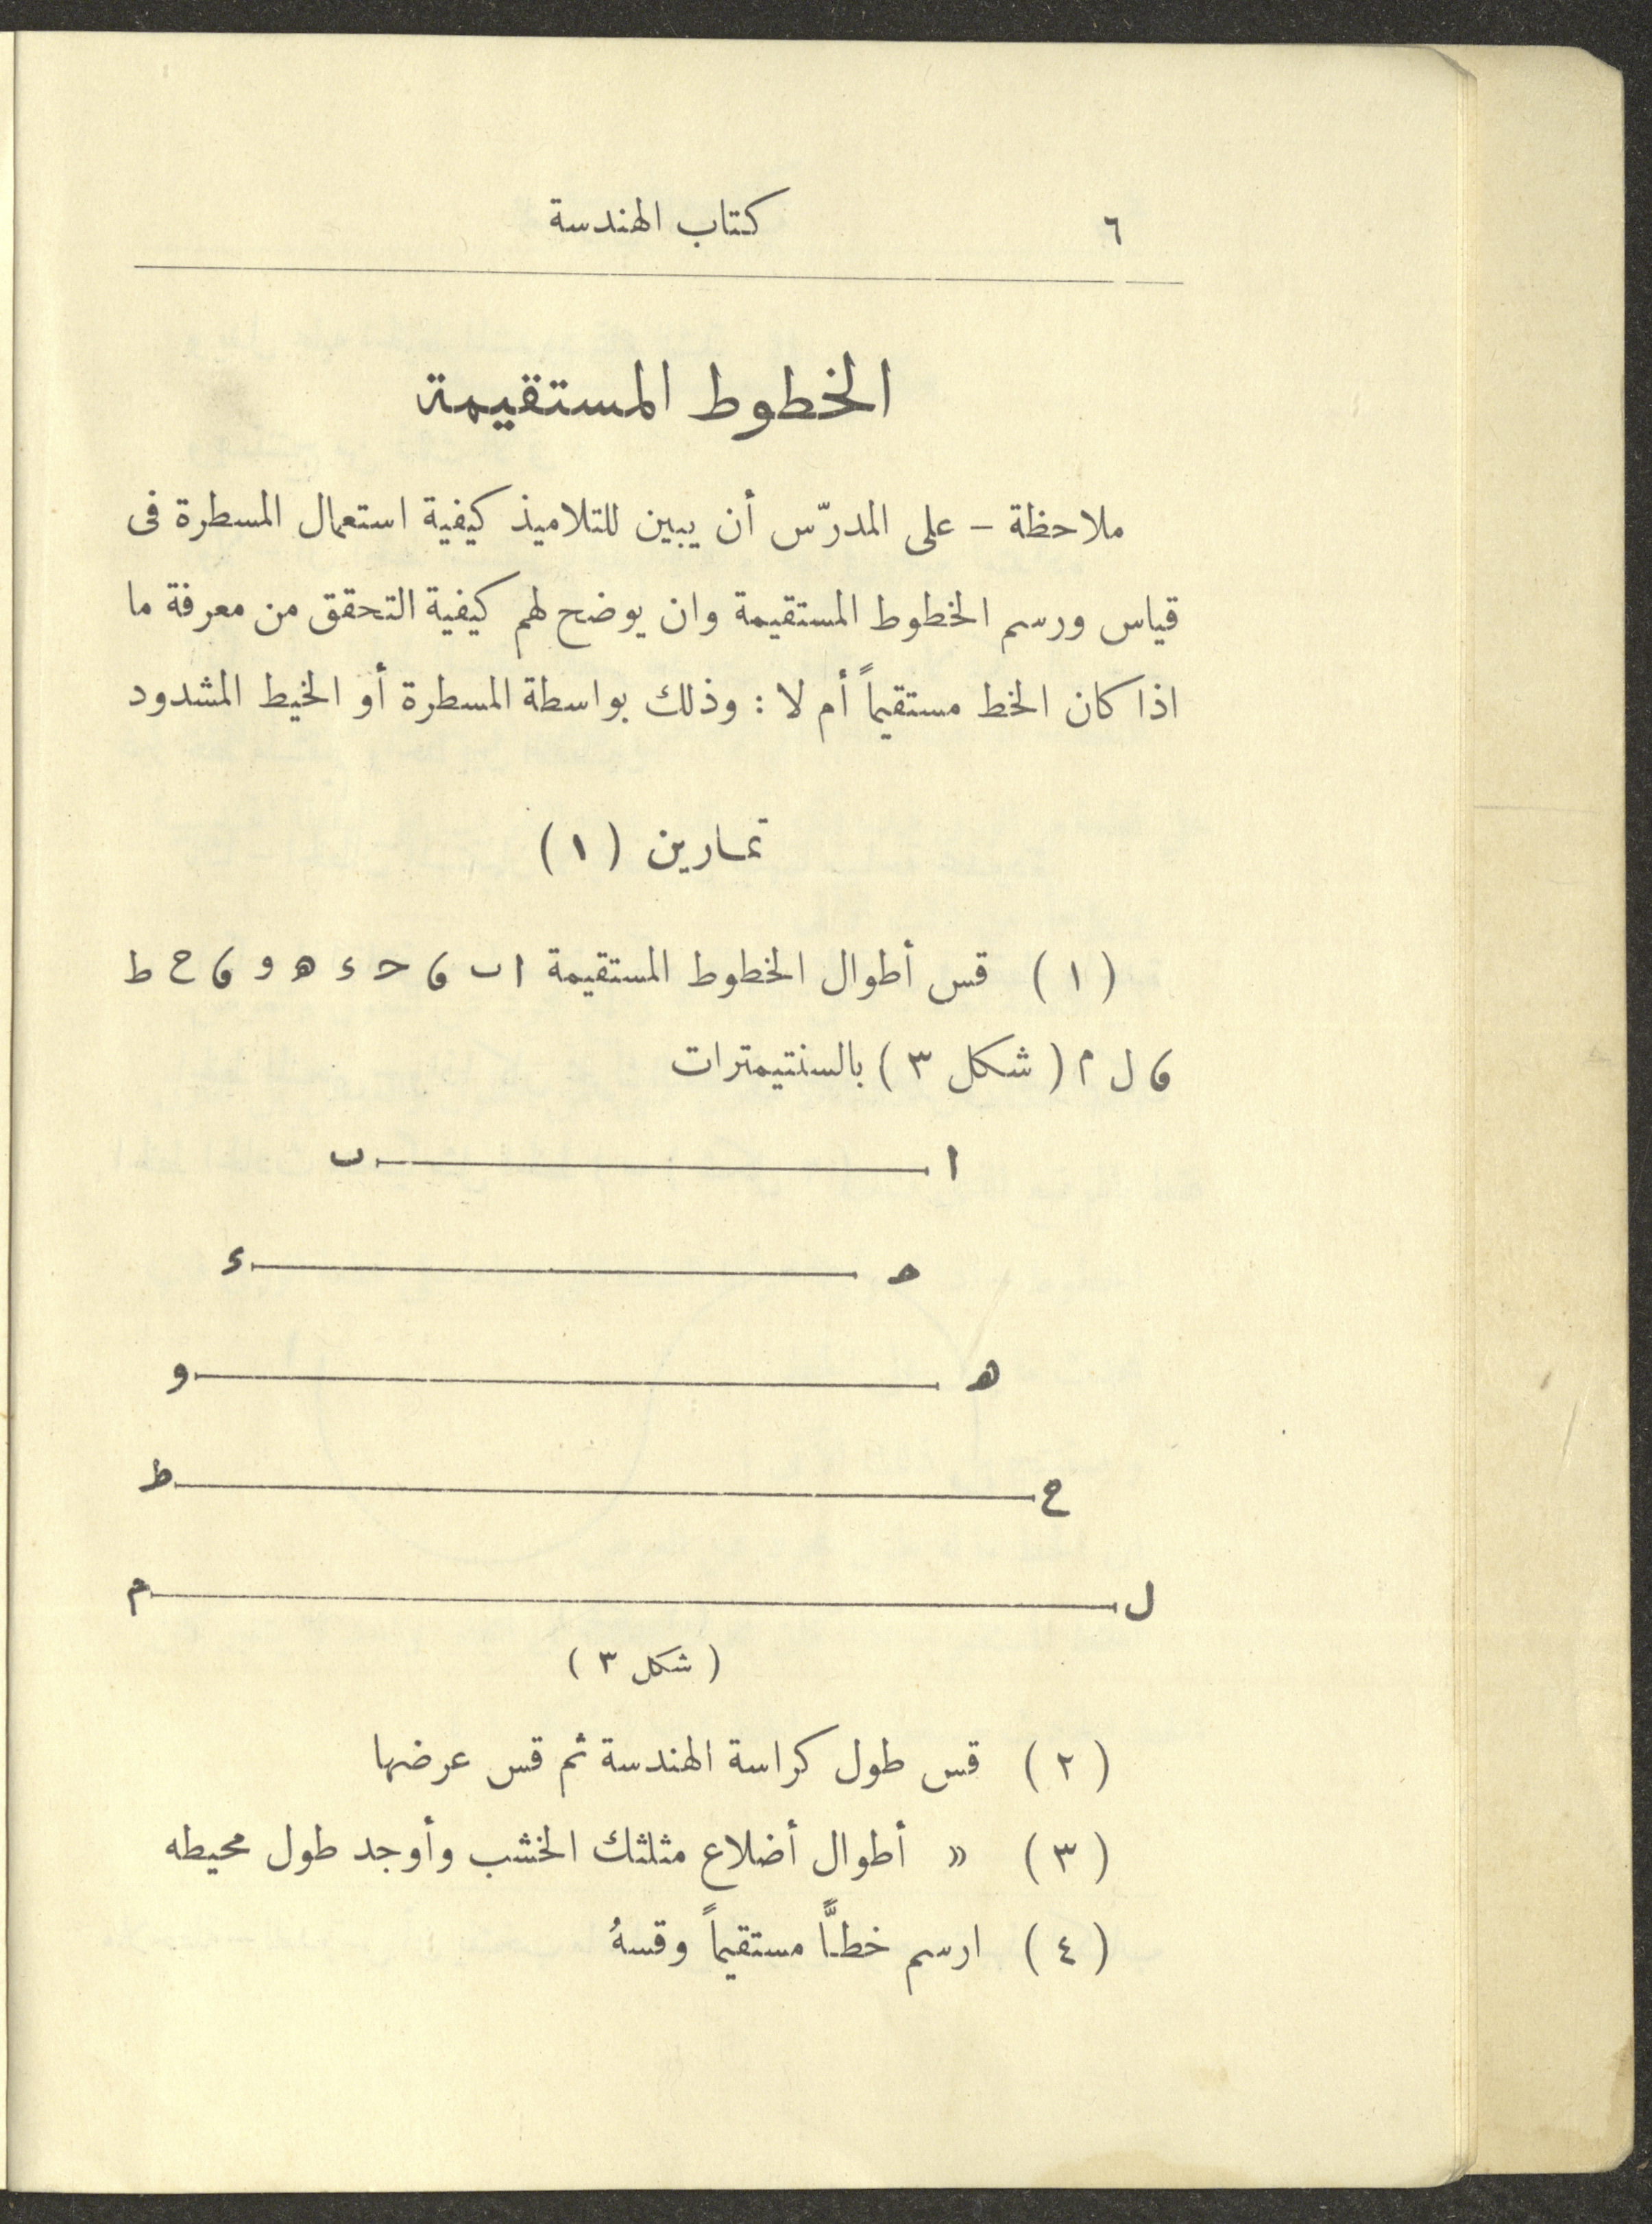 ٦
كتاب الهندسة
الخطوط المستقيمة
ملاحظة – على المدرّس أن يبين للتلاميذ كيفية استعمال المسطرة فى
قياس ورسم الخطوط المستقيمة وان يوضح لهم كيفية التحقق من معرفة ما
اذا كان الخط مستقيماً أم لا : وذلك بواسطة المسطرة أو الخيط المشدود
تمارين ( ١ )
( ١ ) قس أطوال الخطوط المستقيمة ا ب ، حـ ء ه و ، ح ط
، ل م ( شكل ٣ ) بالسنتيمترات
ا ب
حـ ء
ه و
ح ط
ل م
( شكل ٣ )
( ٢ ) قس طول كراسة الهندسة ثم قس عرضها
( ٣ ) » أطوال أضلاع مثلثك الخشب وأوجد طول محيطه
( ٤ ) ارسم خطًّا مستقيماً وقسهُ